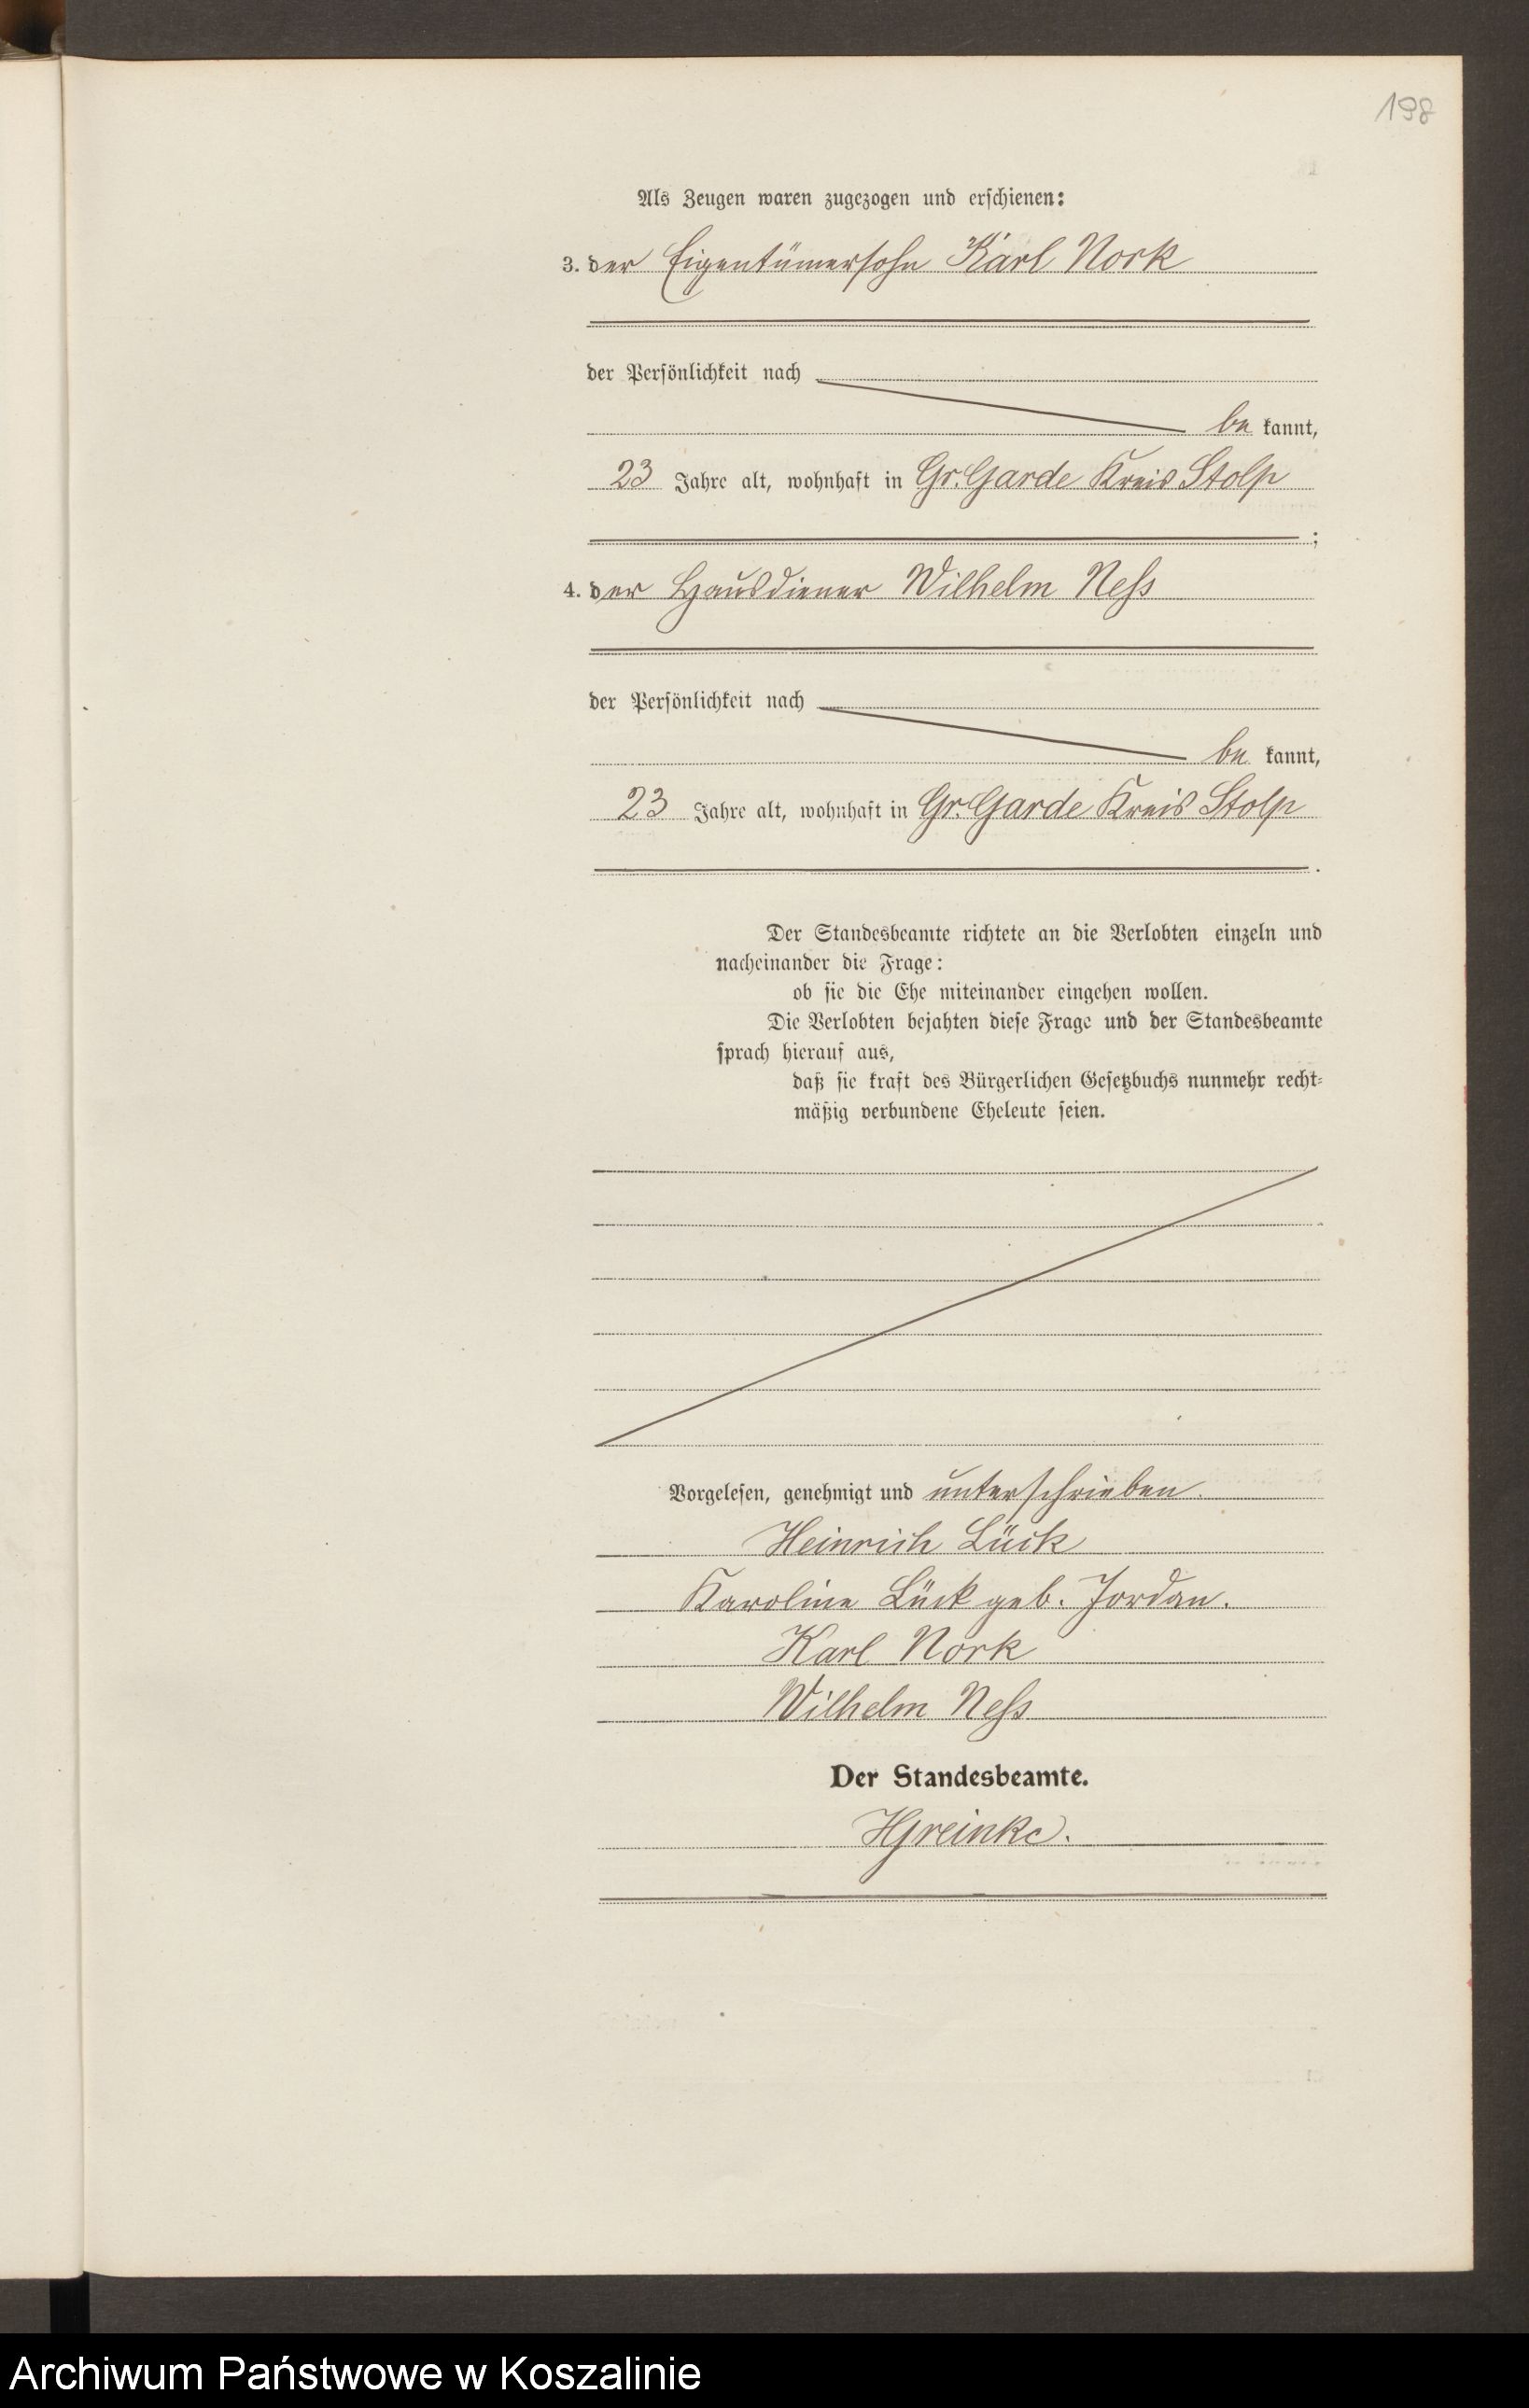 198
Als Zeugen waren zugezogen und erschienen:
3. der Eigentümersohn Karl Nork
der Persönlichkeit nach
be kannt,
23 Jahre alt, wohnhaft in Gr. Garde Kreis Stolp
;
4. der Hausdiener Wilhelm Neſs
der Persönlichkeit nach
be kannt,
23 Jahre alt, wohnhaft in Gr. Garde Kreis Stolp
.
Der Standesbeamte richtete an die Verlobten einzeln und
nacheinander die Frage:
ob sie die Ehe miteinander eingehen wollen.
Die Verlobten bejahten diese Frage und der Standesbeamte
sprach hierauf aus,
daß sie kraft des Bürgerlichen Gesetzbuchs nunmehr recht-
mäßig verbundene Eheleute seien.
Vorgelesen, genehmigt und unterschrieben.
Heinrich Lück
Karoline Lück geb. Jordan.
Karl Nork
Wilhelm Neſs
Der Standesbeamte.
HGreinke.
Archiwum Państwowe w Koszalinie